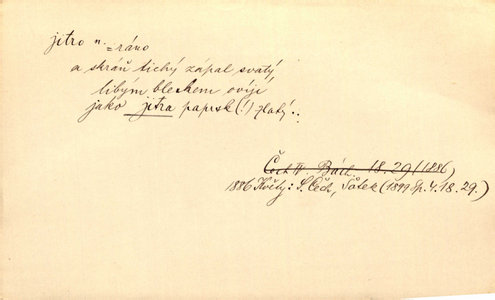 jitro n. = ráno
a skráň tichý zápal svatý
libým bleskem ovíjí
jako jitra paprsk (!) zlatý..
Čech IV. Bás. 18. 29/1886,
1886 Květy: S. Čech, (1899 Sp. 4. 18. 29.)